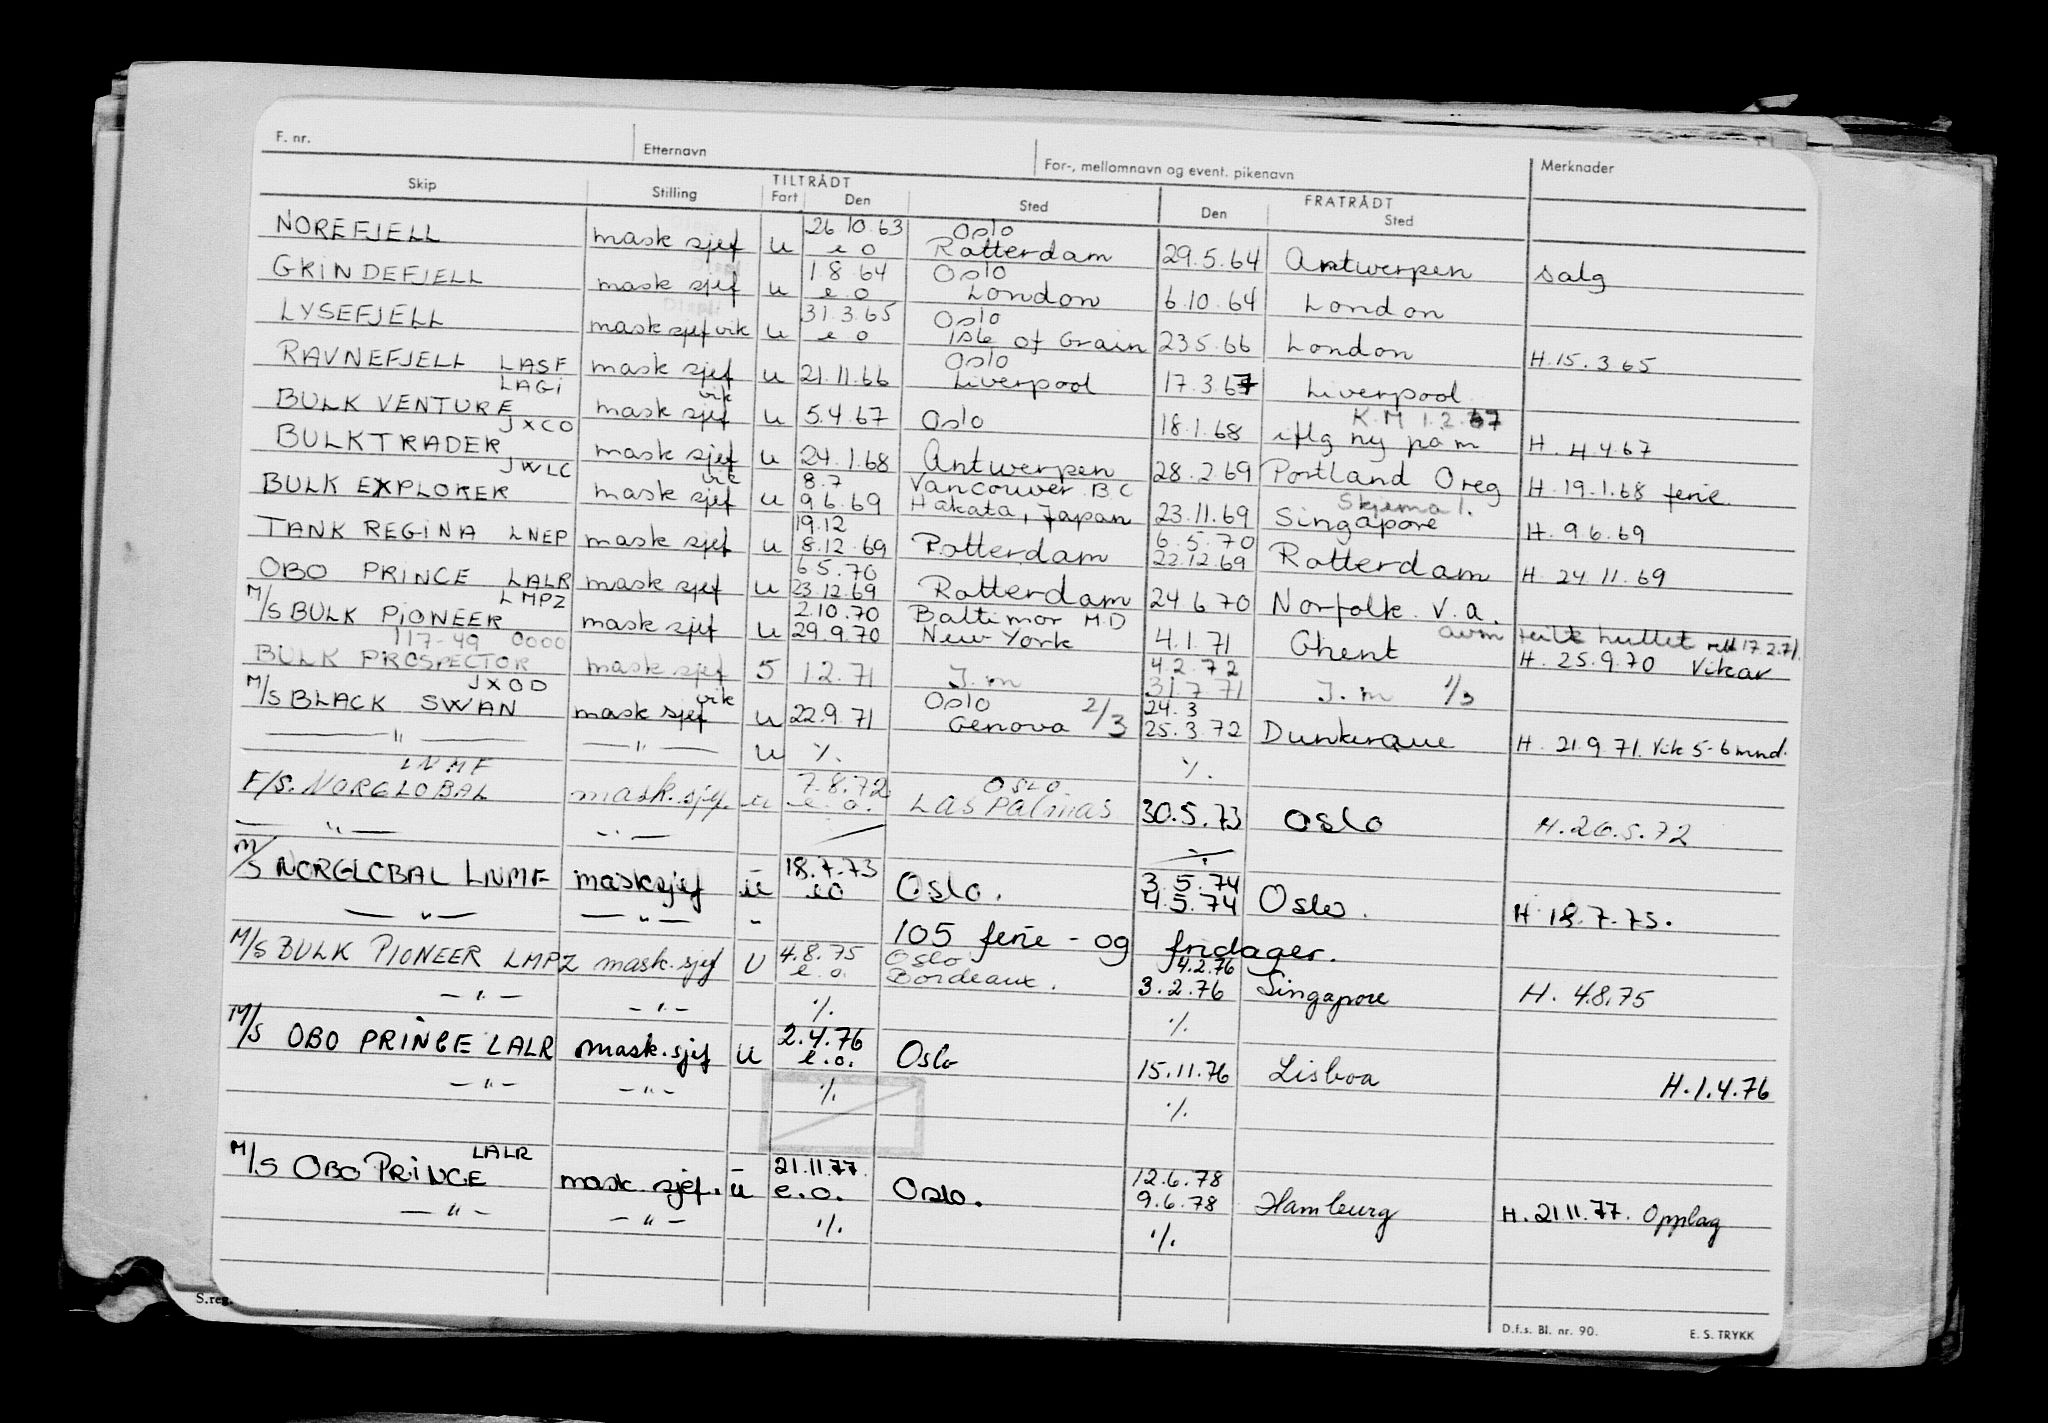 F. nr. Etternavn For-, mellomnavn og event. pikenavn Merknader
Skip Stilling TILTRÅDT Fart Den Sted FRATRÅDT Den Sted
26 10.63 Oslo
NOREFJELL mask sjef u e o Rotterdam 29.5.64 Antwerpen salg
1 8 64 Oslo
GRINDEFJELL mask sjef u e.o London 6.10.64 London
31.3.65 Oslo
LYSEFJELL mask sjef vik u e o Isle of Grain 23 5.66 London H.15.3.65
Oslo
RAVNEFJELL LASF mask sjef u 21.11.66 Liverpool 17.3.67 Liverpool
LAGI vik K.M 1.2.67
BULK VENTURE mask sjef u 5.4.67 Oslo 18.1.68 iflg ny pa m H. 4 4.67
JXCO
BULKTRADER mask sjef u 24.1.68 Antwerpen 28.2.69 Portland Oreg H.19.1.68 ferie
JWLC vik 8.7 Vancouver B.C Skjema 1.
BULK EXPLORER mask sjef u 9 6.69 Hakata, Japan 23.11.69 Singapore H. 9 6.69
19.12 6.5.70
TANK REGINA LNEP mask sjef u 8.12.69 Rotterdam 22.12.69 Rotterdam H. 24 11.69
6 5.70
OBO PRINCE LALR mask sjef u 23.12.69 Rotterdam 24 6 70 Norfolk. V.a.
LMPZ 2.10.70 Baltimor M.D
M/S BULK PIONEER mask sjef u 29.9.70 New York 4.1.71 Ghent H. 25.9.70 Vikar
117-49 0000 4 2 72
BULK PROSPECTOR mask sjef 5 1 2.71 J. m 31.7 71 J. m 1/3
JXOD vik Oslo 24.3
M/S BLACK SWAN mask sjef u 22.9.71 Genova 2/3 25.3.72 Dunkerque H. 21.9 71. Vik 5-6 mnd.
— " — — " — u %. %.
LNMF 7.8.72 OSLO
F/S. NORGLOBAL mask.sjef. u e.o. LAS PALMAS 30.5.73 Oslo H.26.5.72
— " — — " —
18.7.73 3.5.74
M/S NORGLOBAL LNMF masksjef u eo Oslo. 4.5.74 Oslo. H 18.7.73.
— " — — " — - 105 ferie - og fridager.
4.8.75 Oslo 4.2.76
M/S BULK PIONEER LMPZ mask.sjef U e.o. Bordeaux. 3.2.76 Singapore H. 4.8.75
— " — — " — %. %.
2.4.76
M/S OBO PRINCE LALR mask.sjef u e.o. Oslo 15.11.76 Lisboa H.1.4.76
— " — — " — %. %.
LALR 21.11.77. 12.6.78
M/S OBO PRINCE mask. sjef. u e.o. Oslo. 9.6.78 Hamburg H. 21.11.77. Opplag
— " — — " — %. %.
S.reg.
D.f.s. Bl. nr. 90. E. S. TRYKK